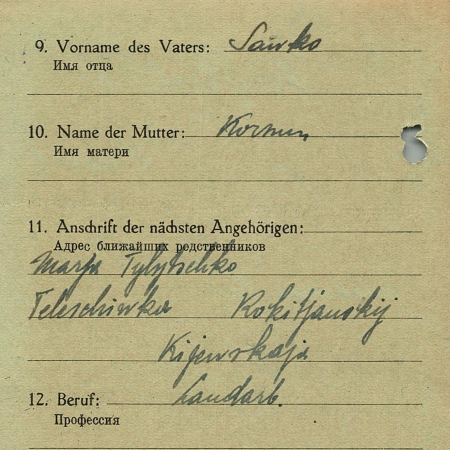 9. Vorname des Vaters: Sawko
Имя отца
10. Name der Mutter: Kormun
Имя матери
11. Anschrift der nächsten Angehörigen:
Адрес ближайших редственников
Marja Tylytschko
Teleschiwka Rokitjanskij
Kijewskaja
12. Beruf: Landarb.
Профессия